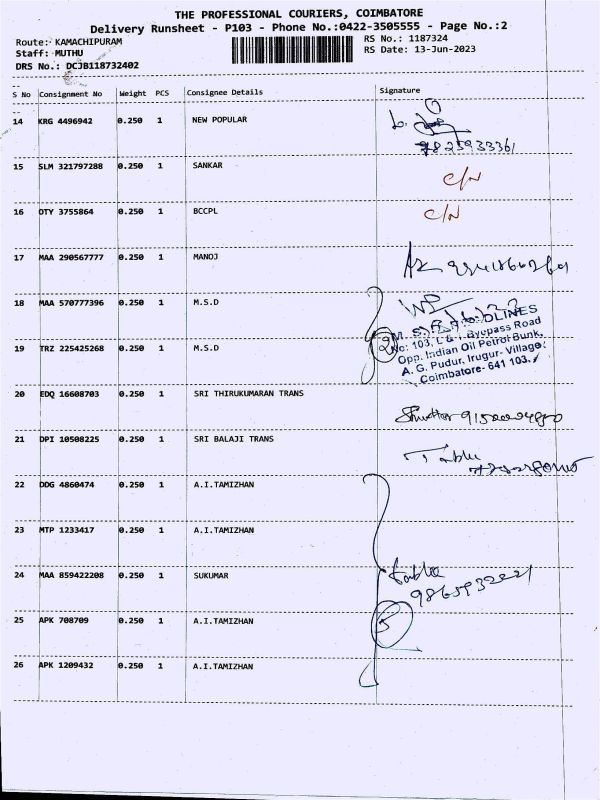 THE PROFESSIONAL COURIERS, COIMBATORE
Delivery Runsheet - P103 - Phone No.:0422-3505555 - Page No.:2
Route: KAMACHIPURAM RS No.: 1187324
Staff: MUTHU RS Date: 13-Jun-2023
DRS No.: DCJB118732402
S No Consignment No Weight PCS Consignee Details Signature
14 KRG 4496942 0.250 1 NEW POPULAR
15 SLM 321797288 0.250 1 SANKAR C/N
16 OTY 3755864 0.250 1 BCCPL C/N
17 MAA 290567777 0.250 1 MANOJ
18 MAA 570777396 0.250 1 M.S.D
19 TRZ 225425268 0.250 1 M.S.D 2
No: 103, L & T Byepass Road
Opp. Indian Oil Petrol Bunk,
A. G. Pudur, Irugur- Village,
Coimbatore- 641 103.
20 EDQ 16608703 0.250 1 SRI THIRUKUMARAN TRANS
21 DPI 10508225 0.250 1 SRI BALAJI TRANS
22 DDG 4860474 0.250 1 A.I.TAMIZHAN
23 MTP 1233417 0.250 1 A.I.TAMIZHAN
24 MAA 859422208 0.250 1 SUKUMAR
25 APK 708709 0.250 1 A.I.TAMIZHAN 5
26 APK 1209432 0.250 1 A.I.TAMIZHAN